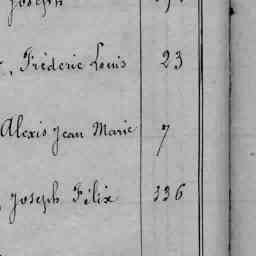 Joseph
, Fréderic Louis 23
Alexis Jean Marie 7
, Joseph Félix 336